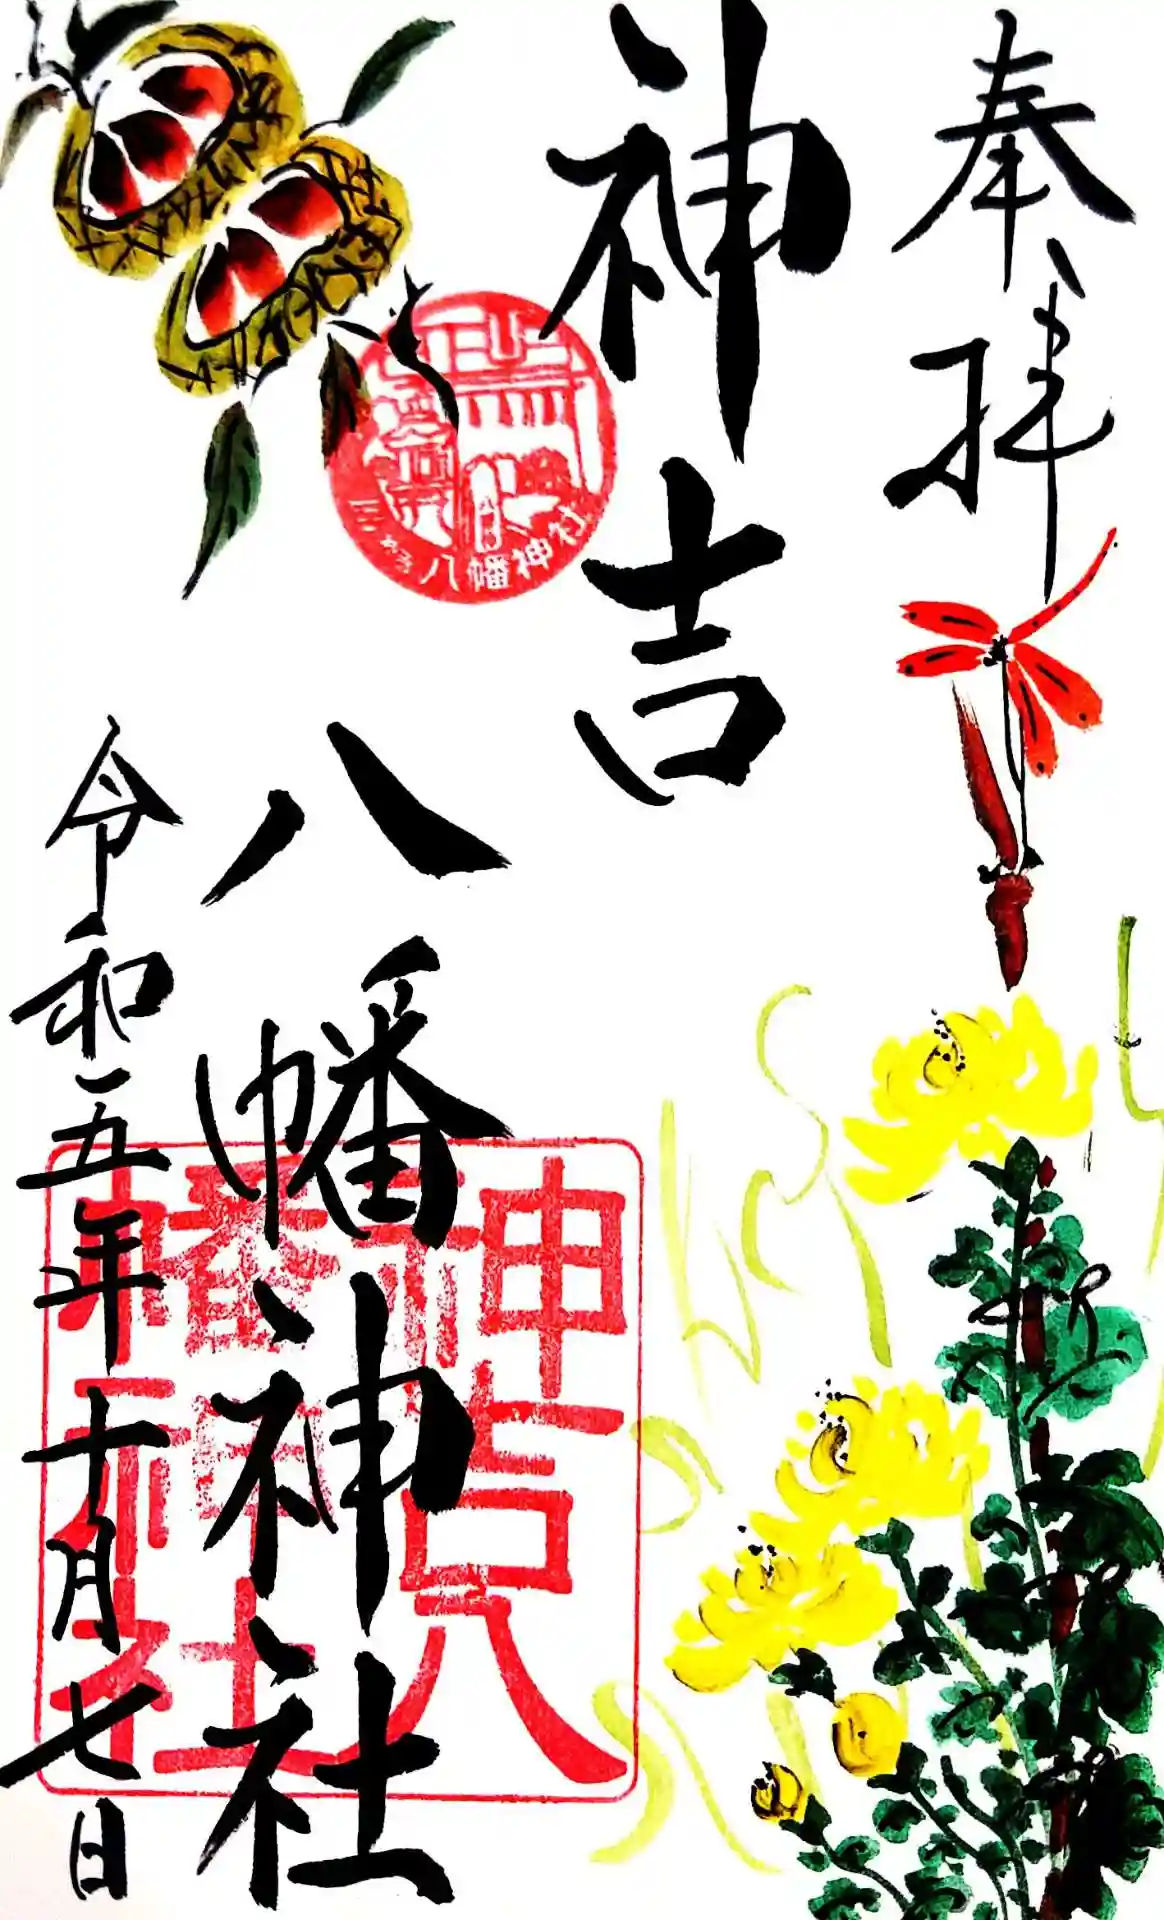 奉拝
神吉
八幡神社
令和五年十月七日
八幡神社
神吉八
幡神社